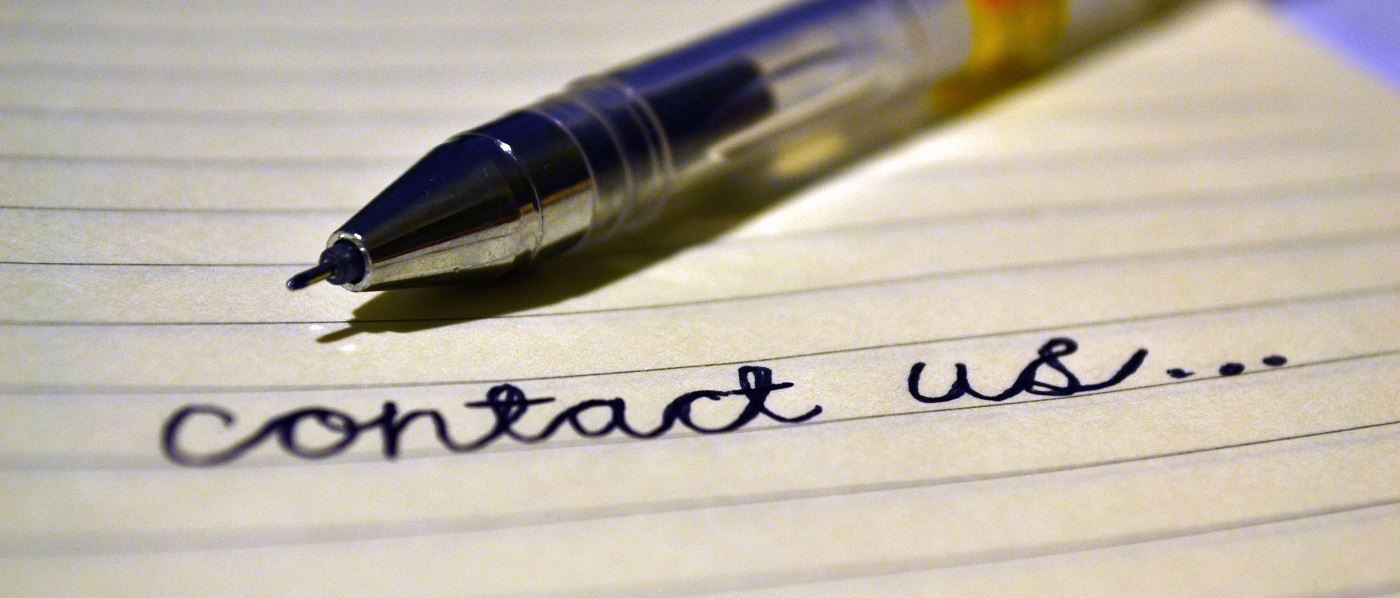 contact us...